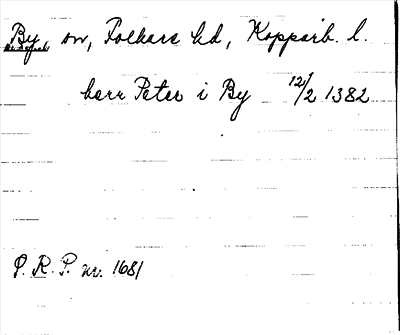 By, sn, Folkare hd, Kopparb. l.
herr Peter i By 12/2 1382
P. R. P. nr. 1681